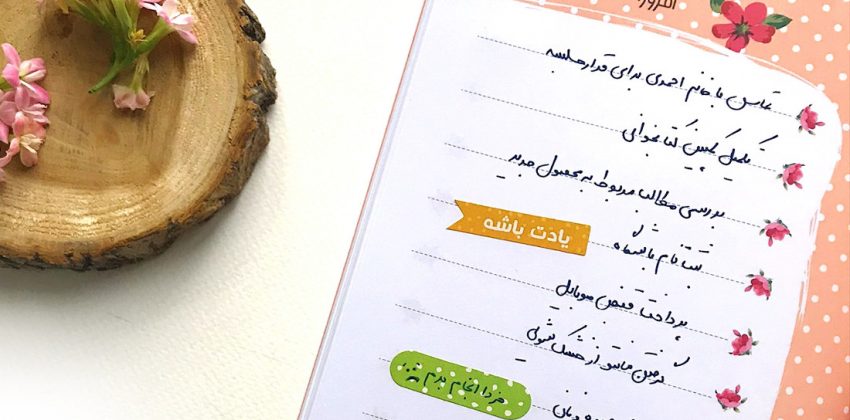 امروز
تماس با خانم احمدی برای قرار جلسه
تکمیل کمپین کتابخوانی
بررسی مطالب مربوط به محصول جدید
ثبت نام باشگاه
یادت باشه
پرداخت قبض موبایل
گرفتن مانتو از خشکشویی
فردا انجام بدم